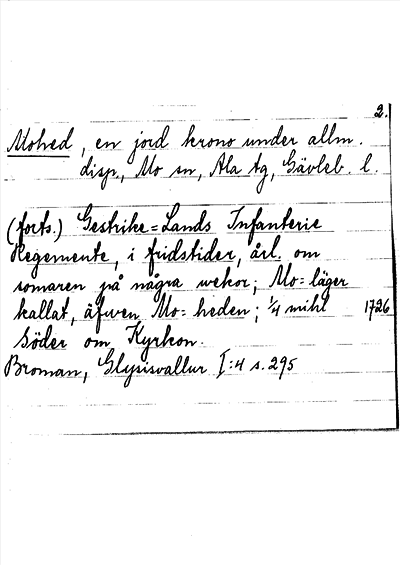 2.
Mohed, en jord krono under allm.
disp., Mo sn, Ala tg, Gävleb. l.
(forts.) Gestrike=Lands Infanterie
Regemente, i fridstider, årl. om
somaren på några wekor; Mo=läger
kallat, äfwen Mo=heden; 1/4 mihl 1726
Söder om Kyrkon.
Broman, Glysisvallur I:4 s. 295